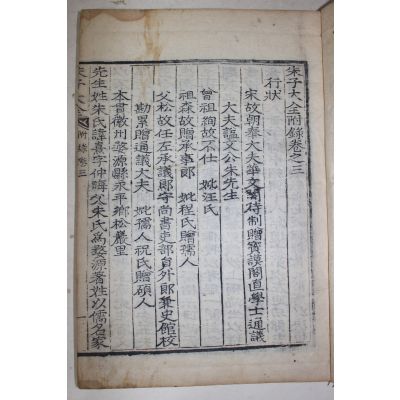 朱子大全附錄卷之三
行狀
宋故朝奉大夫華文閣待制贈寶謨閣直學士通議
大夫謚文公朱先生
曾祖絢故不仕 妣汪氏
祖森故贈承事郎 妣程氏贈孺人
父松故任左承議郎守尚書吏部員外郎兼史館校
勘累贈通議大夫 妣孺人祝氏贈碩人
本貫徽州婺源縣永平鄉松巖里
先生姓朱氏諱熹字仲晦父朱氏爲婺源著姓以儒名家
朱子大全 附錄卷三 一